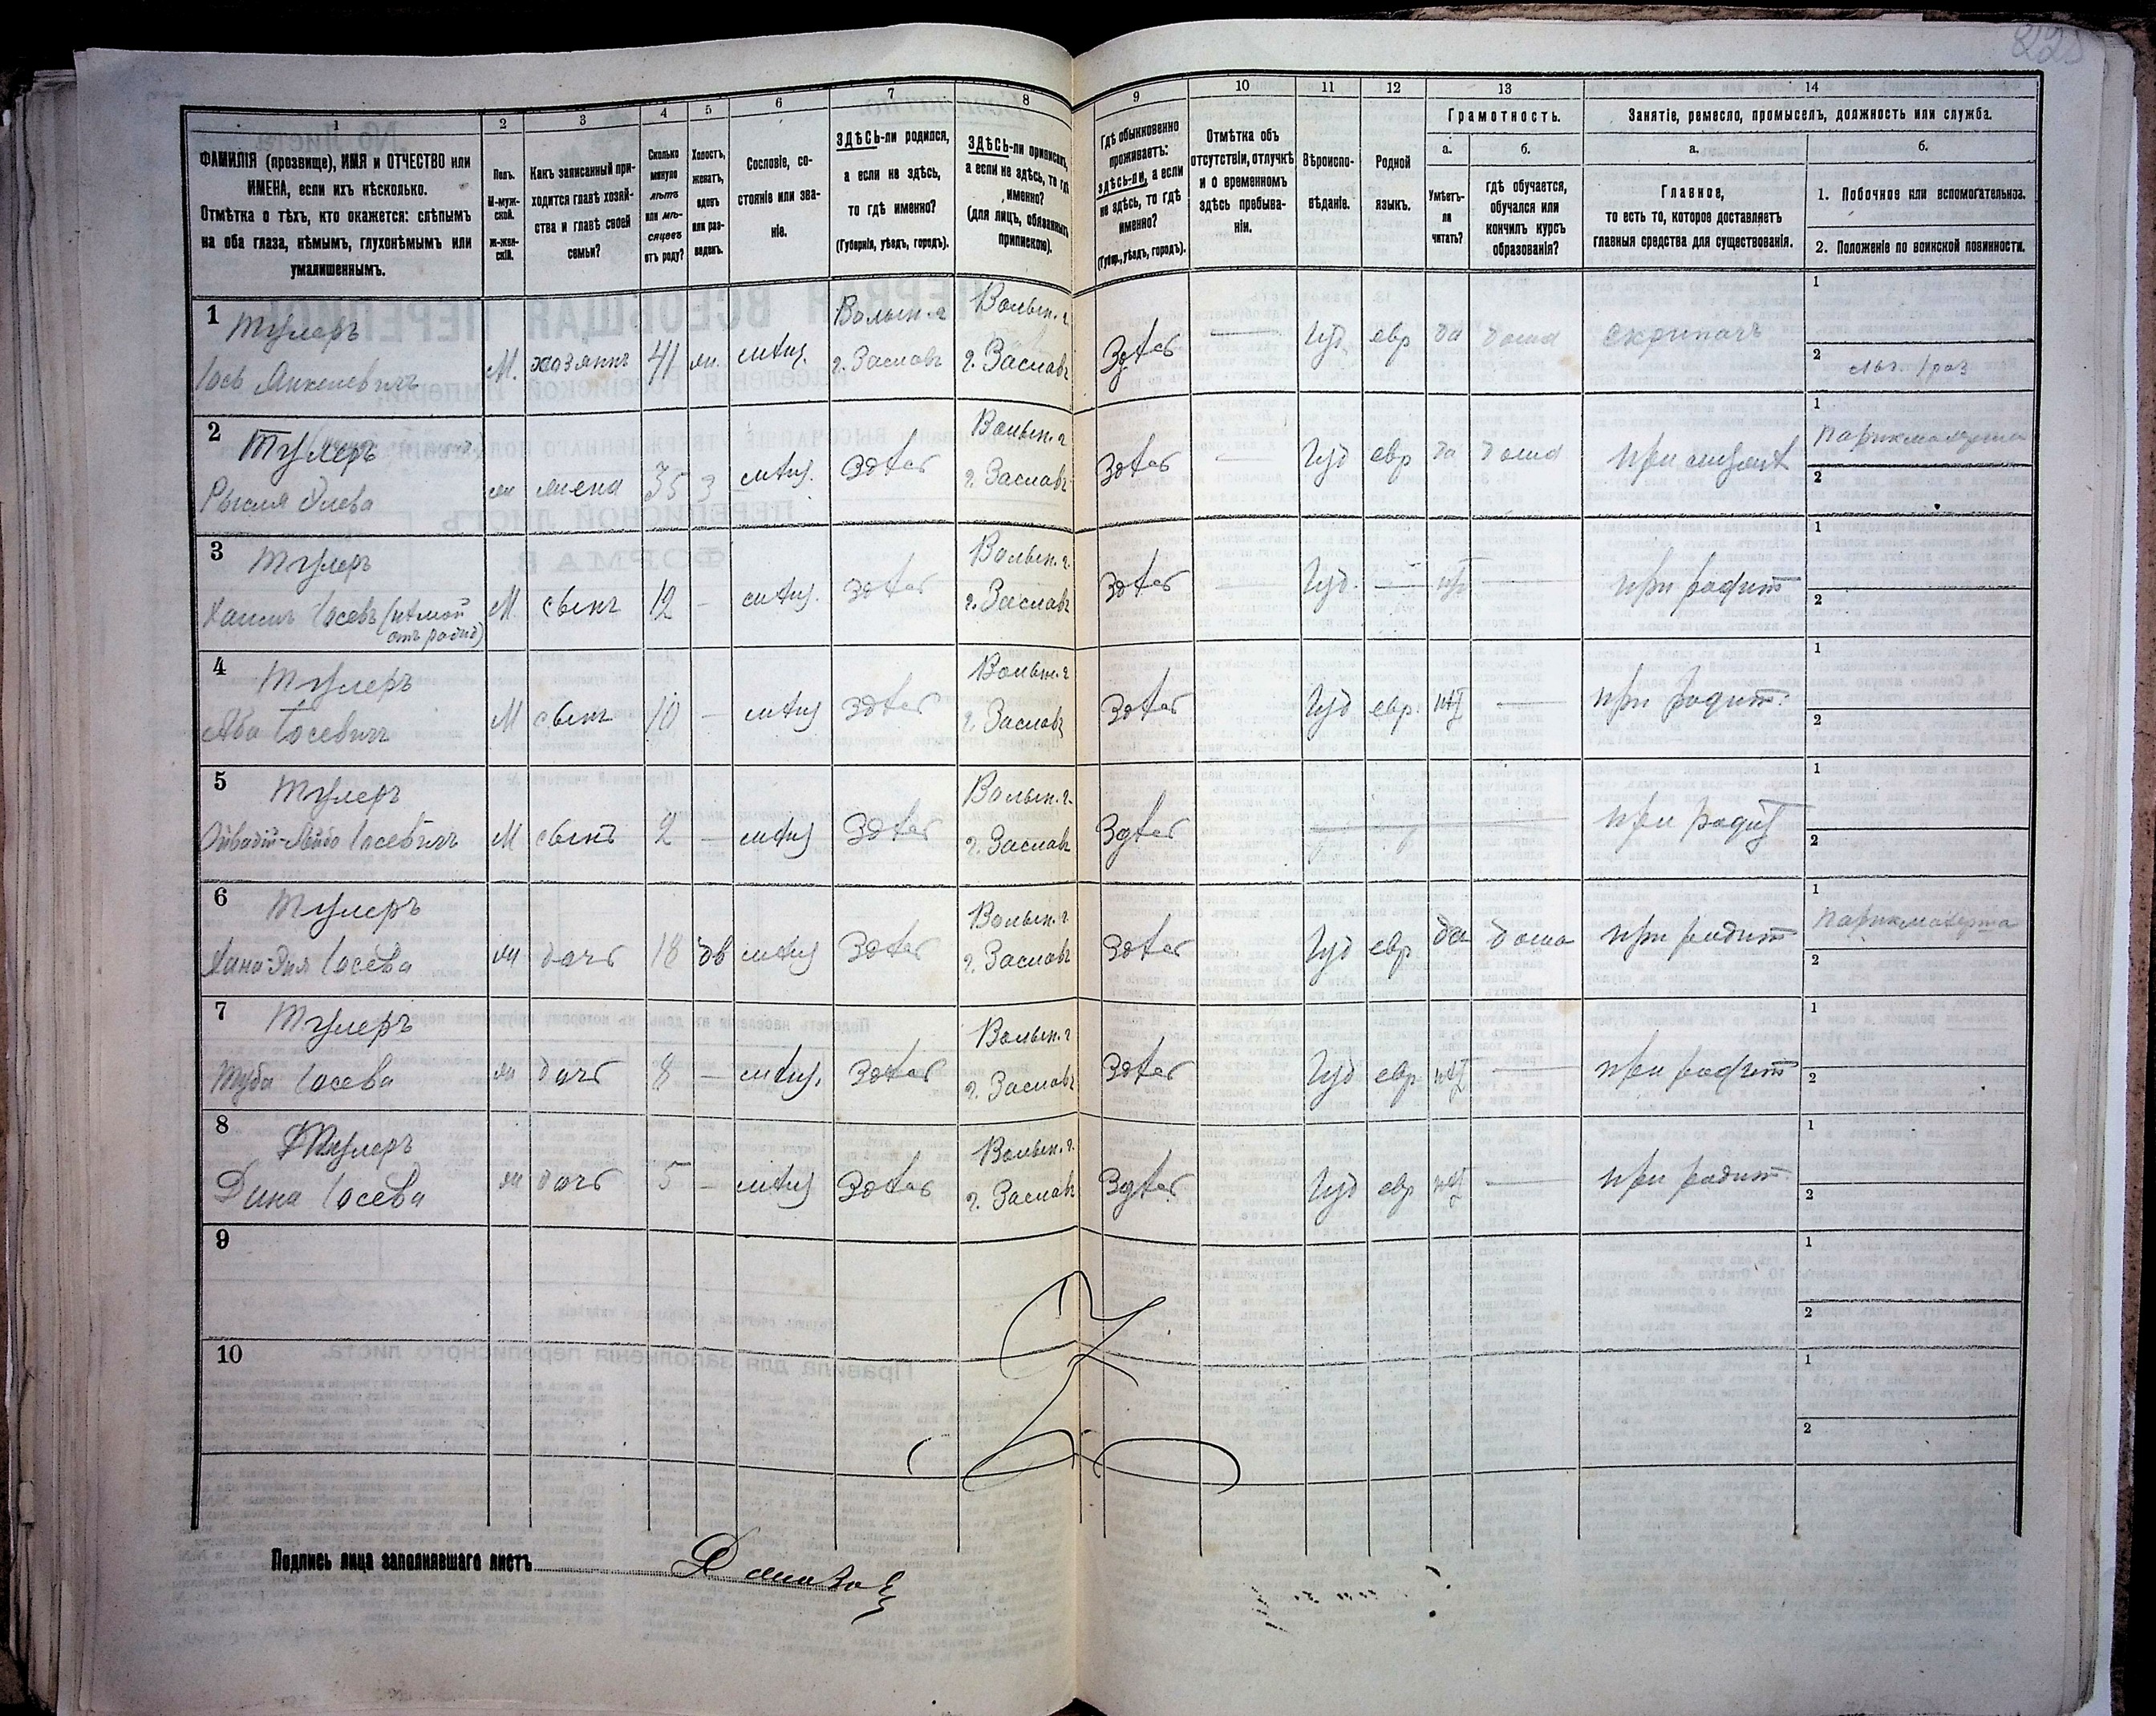 1 2 3 4 5 6 7 8 9 10 11 12 13 14
ФАМИЛІЯ (прозвище), ИМЯ и ОТЧЕСТВО или
ИМЕНА, если ихъ нѣсколько.
Отмѣтка о тѣхъ, кто окажется: слѣпымъ
на оба глаза, нѣмымъ, глухонѣмымъ или
умалишеннымъ.
Полъ.
М-муж-
ской.
ж-жен-
скій.
Какъ записанный при-
ходится главѣ хозяй-
ства и главѣ своей
семьи?
Сколько
минуло
лѣтъ
или мѣ-
сяцевъ
отъ роду?
Холостъ,
женатъ,
вдовъ
или раз-
веденъ.
Сословіе, со-
стояніе или зва-
ніе.
ЗДѢСЬ-ли родился,
а если не здѣсь,
то гдѣ именно?
(Губернія, уѣздъ, городъ).
ЗДѢСЬ-ли приписанъ,
а если не здѣсь, то гдѣ
именно?
(для лицъ, обязанныхъ
припискою).
Гдѣ обыкновенно
проживаетъ:
здѣсь-ли, а если
не здѣсь, то гдѣ
именно?
(Губер., уѣздъ, городъ).
Отмѣтка объ
отсутствіи, отлучкѣ
и о временномъ
здѣсь пребыва-
ніи.
Вѣроиспо-
вѣданіе.
Родной
языкъ.
Грамотность.
а.
Умѣетъ-
ли
читать?
б.
гдѣ обучается,
обучался или
кончилъ курсъ
образованія?
Занятіе, ремесло, промыселъ, должность или служба.
а.
Главное,
то есть то, которое доставляетъ
главныя средства для существованія.
б.
1. Побочное или вспомогательное.
2. Положеніе по воинской повинности.
1 Тулеръ Волын. г Волын. г. 1
Іось Янкелевичъ М. хозяинъ 41 жн. мѣщ. г. Заславъ г. Заславъ Здѣсь — Іуд. евр да дома скрипачъ 2
2 Тулеръ Волын. г 1 парикмахерша
жн жена 35 з мѣщ. Здѣсь г. Заславъ Здѣсь — Іуд евр да дома при мужѣ 2
3 Тулеръ Волын. г. 1
Хаимъ Іосевъ (нѣмой М. сынъ 12 — мѣщ. Здѣсь г. Заславъ Здѣсь Іуд. — нѣт — при родит 2
отъ рожд)
4 Тулеръ Волын. г 1
Аба Іосевичъ М сынъ 10 — мѣщ Здѣсь г. Заславъ Здѣсь Іуд евр. нѣт — при родит. 2
5 Тулеръ Волын. г. 1
Іосевичъ М сынъ 2 — мѣщ Здѣсь г. Заславъ Здѣсь — при родит 2
6 Тулеръ Волын. г. 1 парикмахерша
Іосева жн дочь 18 дв мѣщ Здѣсь г. Заславъ Здѣсь Іуд евр да дома при родит 2
7 Тулеръ Волын. г 1
Туба Іосева жн дочь 8 — мѣщ. Здѣсь г. Заславъ Здѣсь Іуд евр нѣт — при родит 2
8 Тулеръ Волын. г. 1
Дина Іосева жн дочь 5 — мѣщ Здѣсь г. Заславъ Здѣсь Іуд евр нѣт — при родит. 2
9 1
2
10 1
2
Подпись лица заполнявшаго листъ